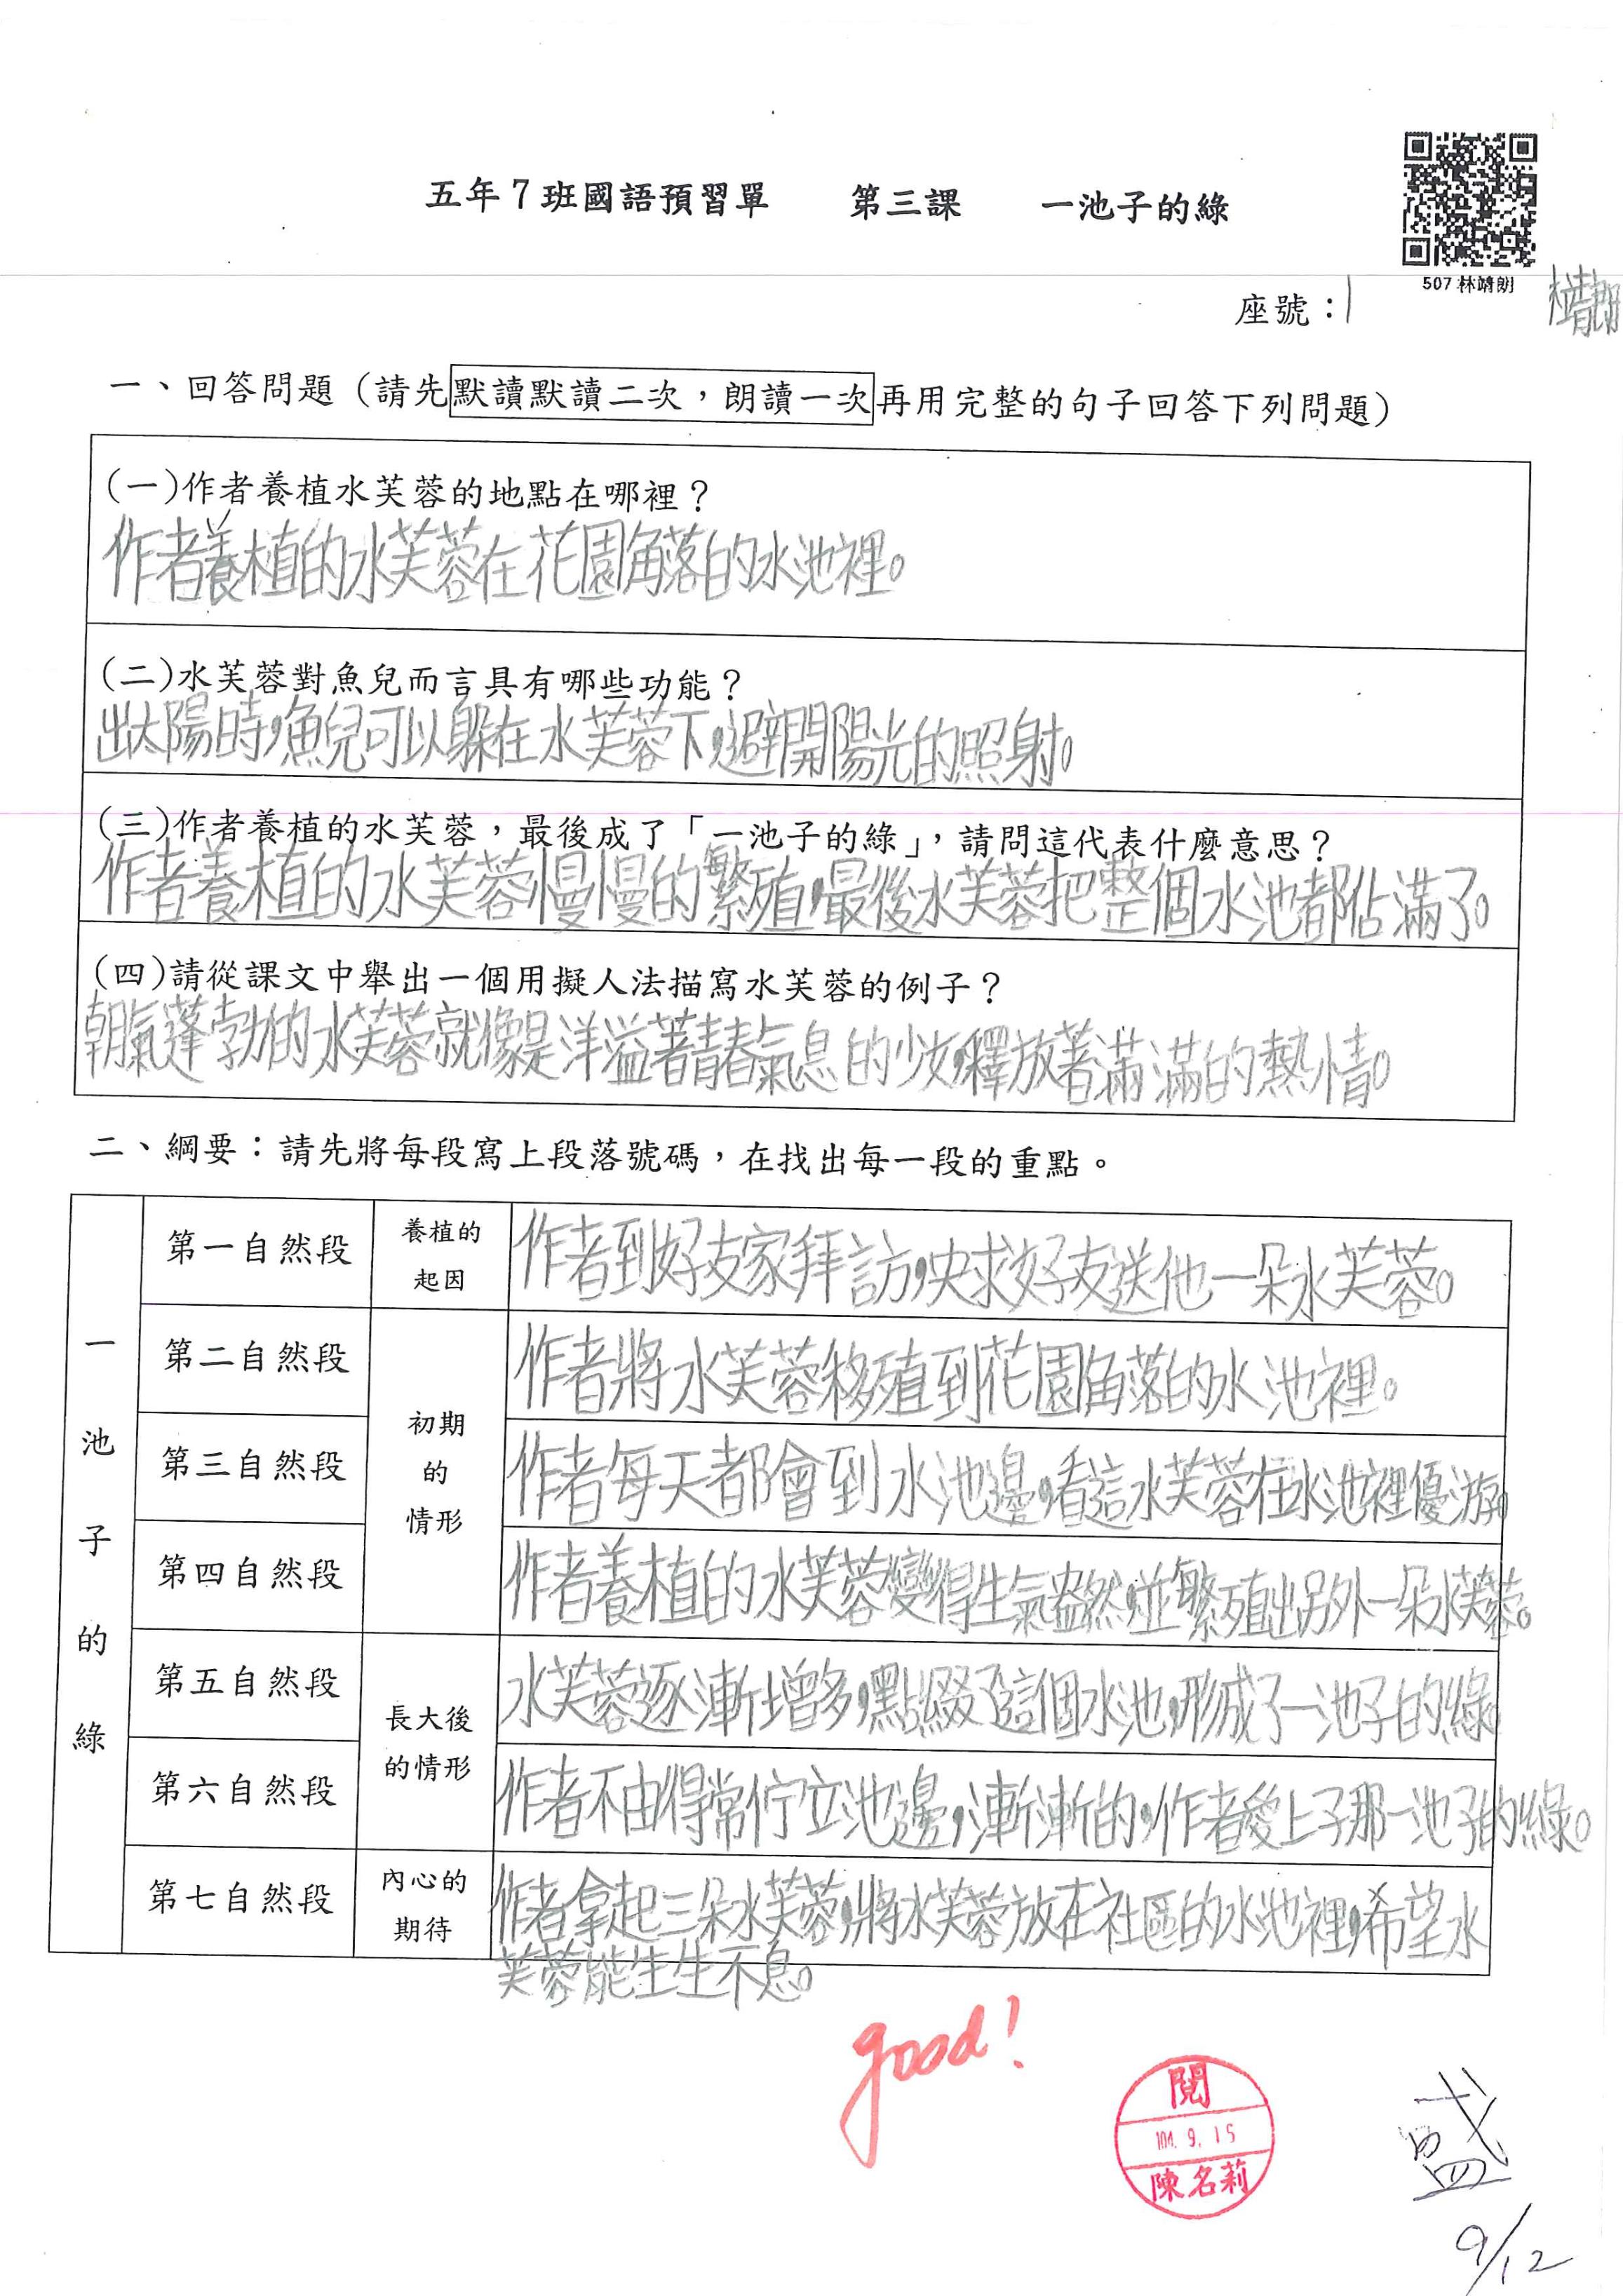 五年7班國語預習單 第三課 一池子的綠
507 林靖朗
座號：1 林靖朗
一、回答問題（請先默讀默讀二次，朗讀一次再用完整的句子回答下列問題）
(一)作者養植水芙蓉的地點在哪裡？
作者養植的水芙蓉在花園角落的水池裡。
(二)水芙蓉對魚兒而言具有哪些功能？
出太陽時，魚兒可以躲在水芙蓉下，避開陽光的照射。
(三)作者養植的水芙蓉，最後成了「一池子的綠」，請問這代表什麼意思？
作者養植的水芙蓉慢慢的繁殖，最後水芙蓉把整個水池都佔滿了。
(四)請從課文中舉出一個用擬人法描寫水芙蓉的例子？
朝氣蓬勃的水芙蓉就像是洋溢著青春氣息的少女，釋放著滿滿的熱情。
二、綱要：請先將每段寫上段落號碼，在找出每一段的重點。
一池子的綠
第一自然段
養植的
起因
作者到好友家拜訪，央求好友送他一朵水芙蓉。
第二自然段
作者將水芙蓉移殖到花園角落的水池裡。
初期
的
情形
第三自然段
作者每天都會到水池邊，看這水芙蓉在水池裡優游。
第四自然段
作者養植的水芙蓉變得生氣盎然，並繁殖出另外一朵水芙蓉。
第五自然段
水芙蓉逐漸增多，點綴了這個水池，形成了一池子的綠
長大後
的情形
第六自然段
作者不由得常佇立池邊，漸漸的，作者愛上了那一池子的綠。
第七自然段
內心的
期待
作者拿起三朵水芙蓉，將水芙蓉放在社區的水池裡，希望水
芙蓉能生生不息。
good!
閱
104. 9. 15
陳名莉
盛
9/12